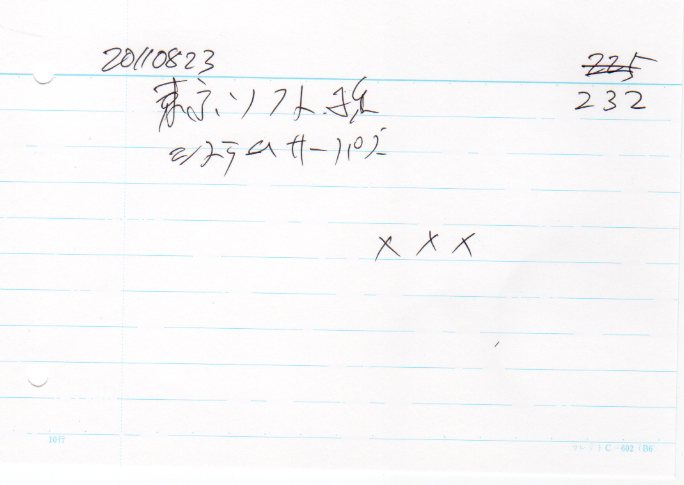 20110823
225
232
東京ソフト
システムサーバ
×××
10行
C-602 (B6